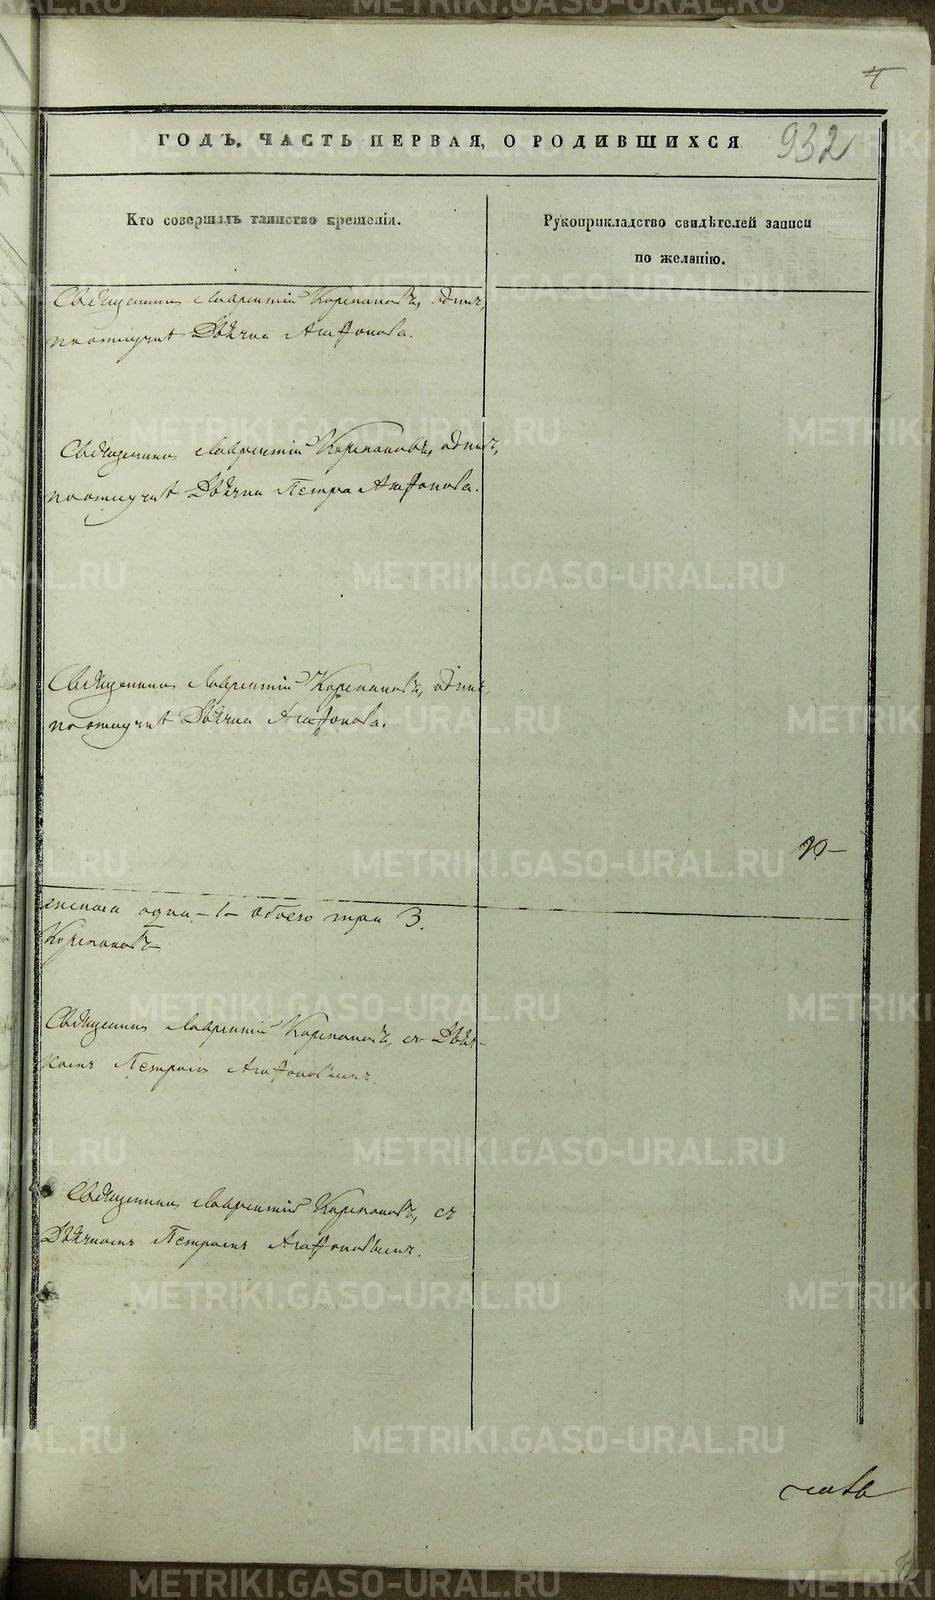 4
ГОДЪ, ЧАСТЬ ПЕРВАЯ, О РОДИВШИХСЯ
932
Кто совершалъ таинство крещенія.
Рукоприкладство свидѣтелей записи
по желанію.
Священникъ Лаврентій Корепановъ, одинъ,
по отлучкѣ Дьячка Агафонова.
Священникъ Лаврентій Корепановъ, одинъ,
по отлучкѣ Дьячка Петра Агафонова.
Священникъ Лаврентій Корепановъ, одинъ
по отлучкѣ Дьячка Агафонова.
енскаго одна -1- обоего три 3.
Корепановъ
Священникъ Лаврентій Корепановъ, съ Дьяч-
комъ Петромъ Агафоновымъ.
Священникъ Лаврентій Корепановъ, съ
Дьячкомъ Петромъ Агафоновымъ.
METRIKI.GASO-URAL.RU